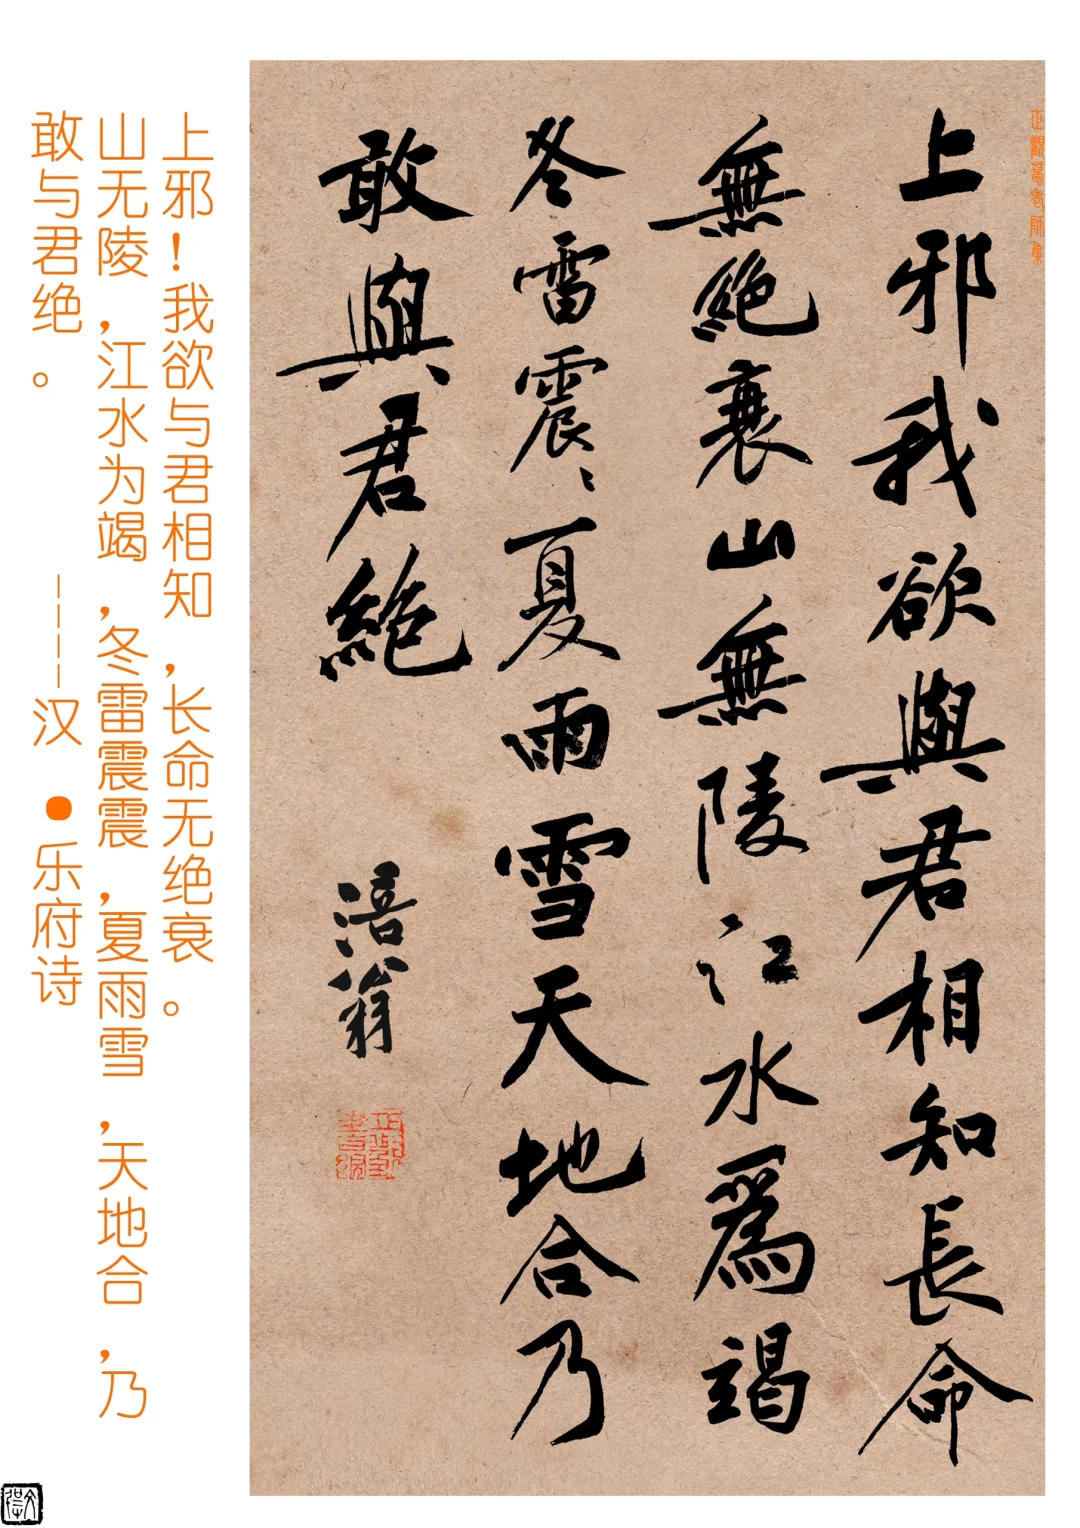 上邪我欲與君相知長命
無絕衰山無陵江水為竭
冬雷震〻夏雨雪天地合乃
敢與君絕
涪翁
上邪！我欲与君相知，长命无绝衰。
山无陵，江水为竭，冬雷震震，夏雨雪，天地合，乃
敢与君绝。
————汉●乐府诗